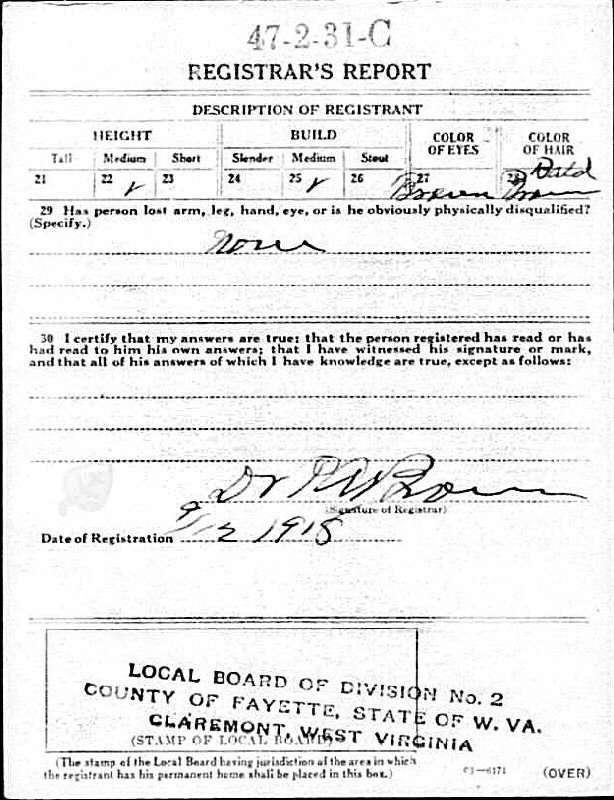 47-2-31-C
REGISTRAR'S REPORT
DESCRIPTION OF REGISTRANT
HEIGHT BUILD COLOR OF EYES COLOR OF HAIR
Tall Medium Short Slender Medium Stout
21 22 ✓ 23 24 25 ✓ 26 27 Brown 28 Brown
29 Has person lost arm, leg, hand, eye, or is he obviously physically disqualified?
(Specify.)
None
30 I certify that my answers are true; that the person registered has read or has
had read to him his own answers; that I have witnessed his signature or mark,
and that all of his answers of which I have knowledge are true, except as follows:
Dr Brown
(Signature of Registrar)
Date of Registration 9/12 1918
LOCAL BOARD OF DIVISION No. 2
COUNTY OF FAYETTE, STATE OF W. VA.
CLAREMONT, WEST VIRGINIA
(STAMP OF LOCAL BOARD)
(The stamp of the Local Board having jurisdiction of the area in which
the registrant has his permanent home shall be placed in this box.)
(OVER)